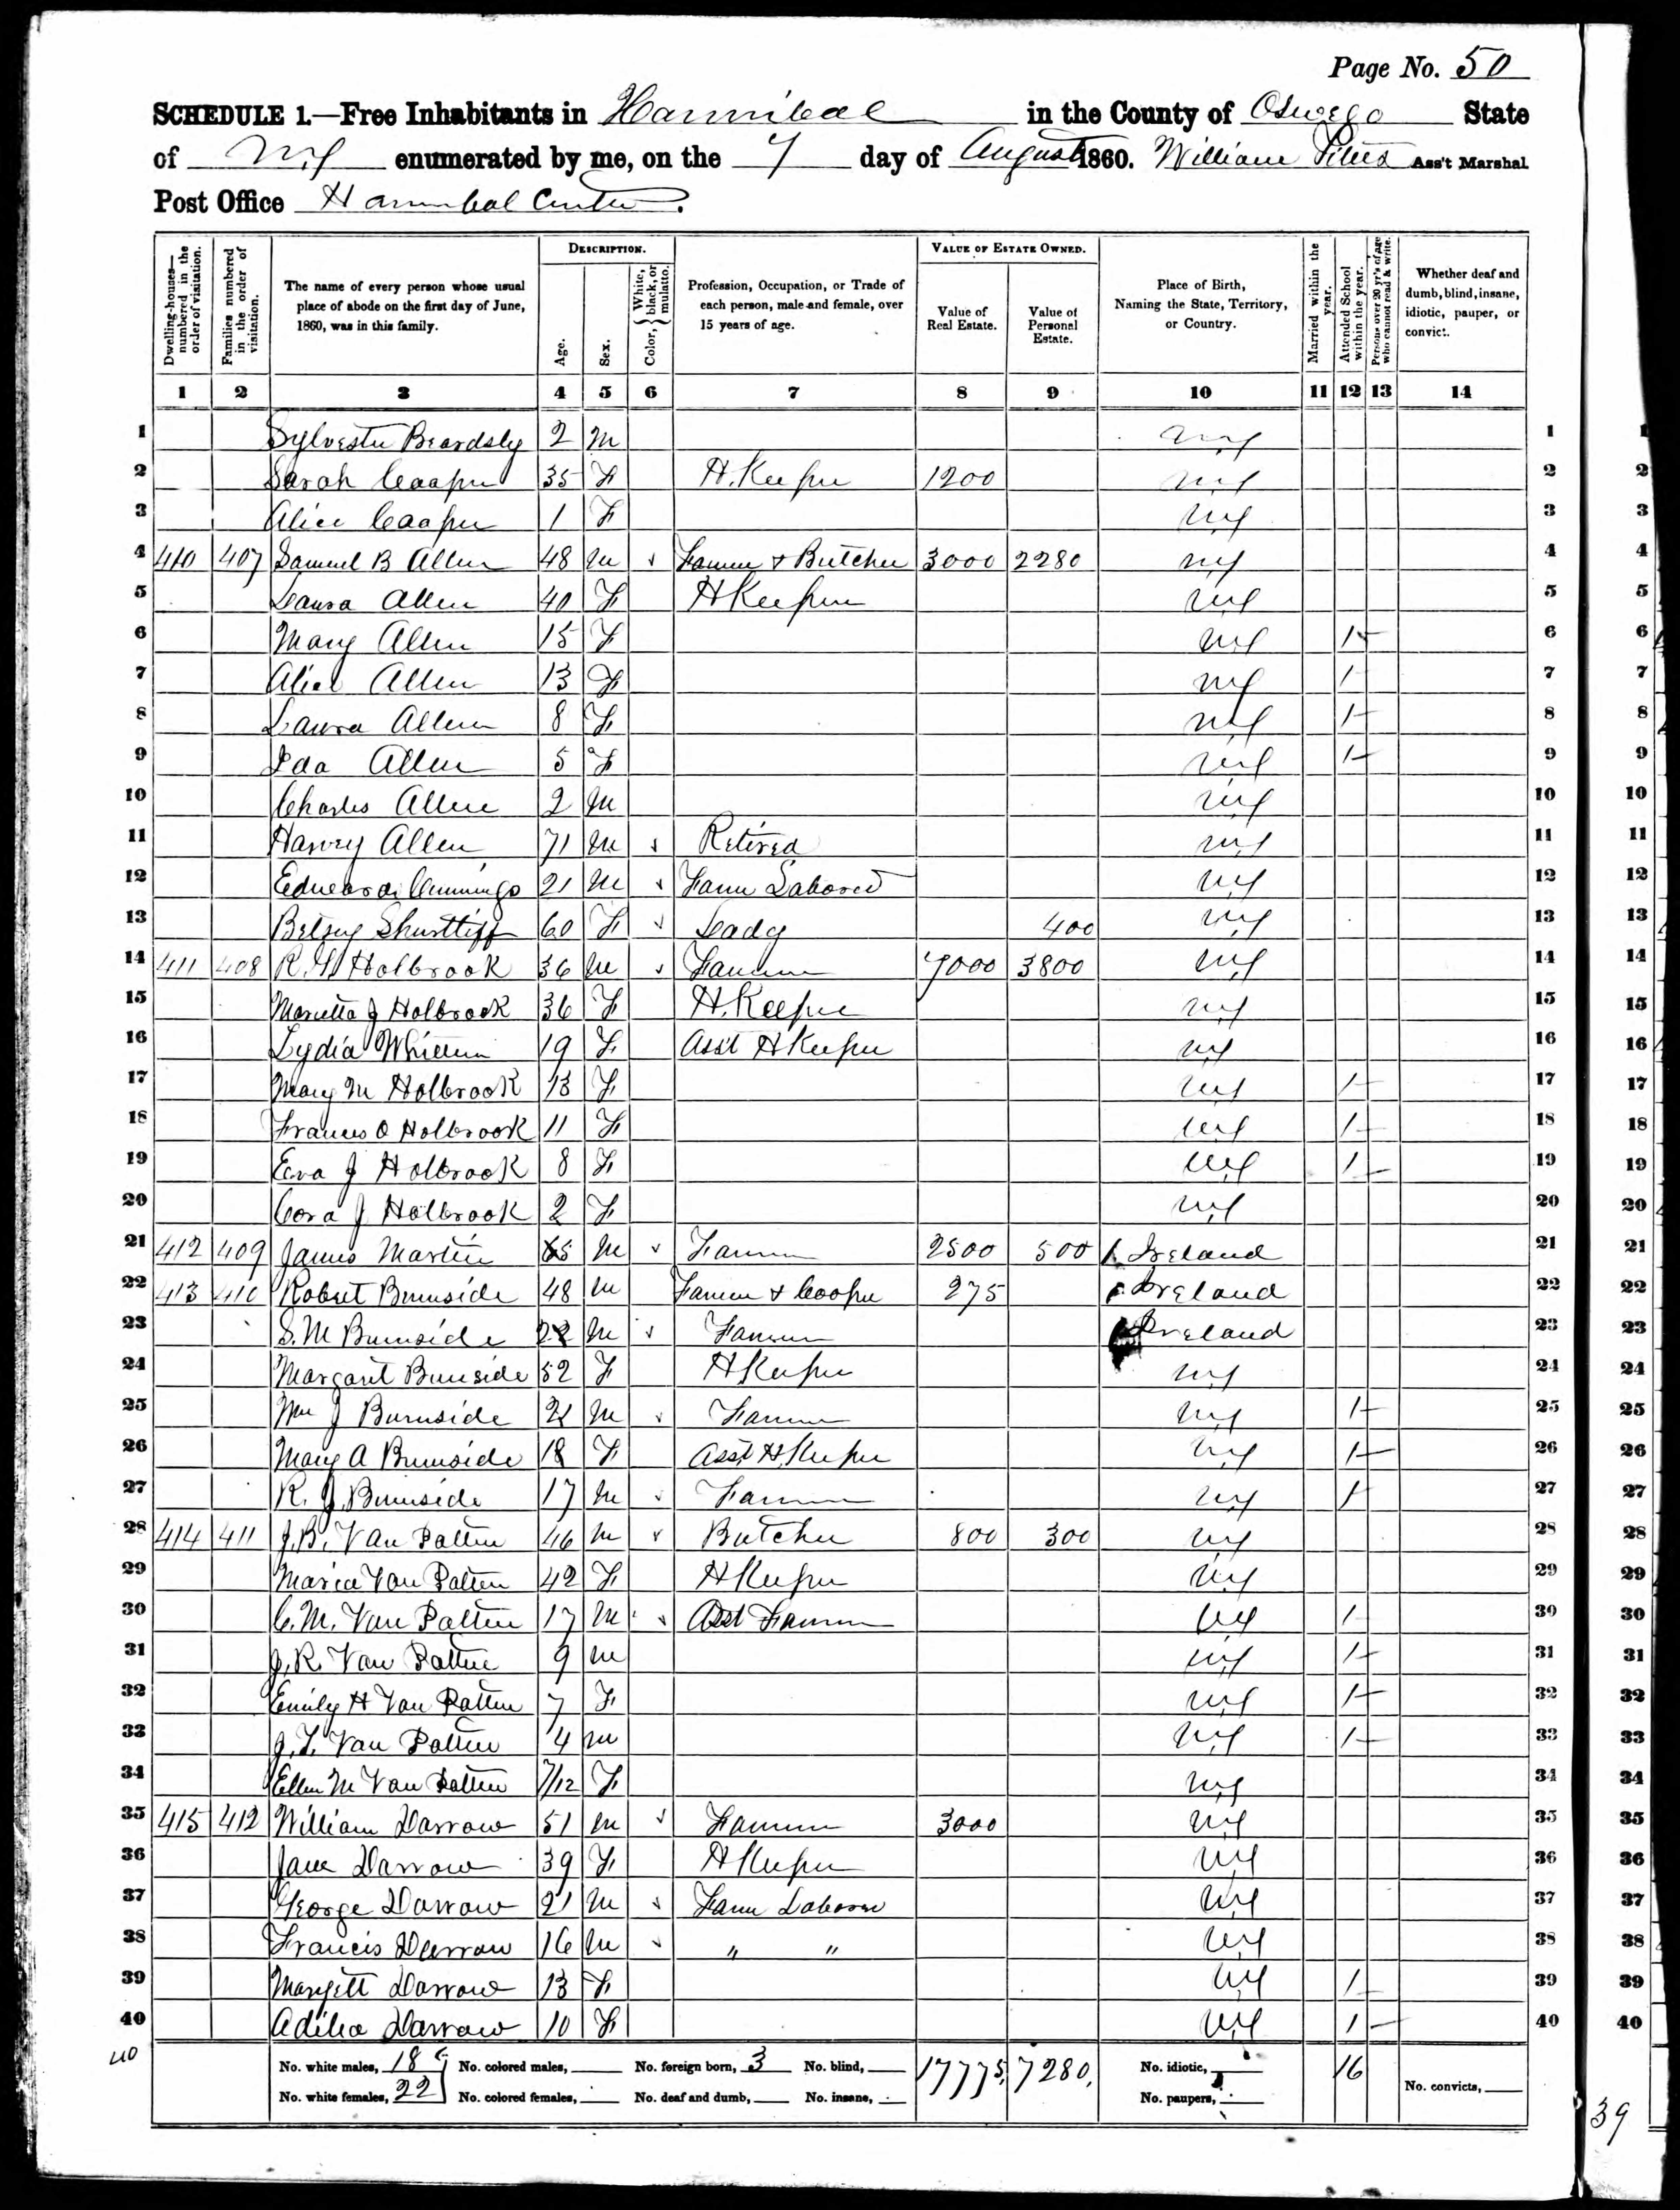 Page No. 50
SCHEDULE 1.—Free Inhabitants in Hannibal in the County of Oswego State
of N.Y enumerated by me, on the 7 day of August 1860. William Ass't Marshal
Post Office Hannibal Center.
Dwelling-houses— numbered in the order of visitation.
Families numbered in the order of visitation.
The name of every person whose usual place of abode on the first day of June, 1860, was in this family.
DESCRIPTION.
Age.
Sex.
Color, { White, black, or mulatto.
Profession, Occupation, or Trade of each person, male and female, over 15 years of age.
VALUE OF ESTATE OWNED.
Value of Real Estate.
Value of Personal Estate.
Place of Birth, Naming the State, Territory, or Country.
Married within the year.
Attended School within the year.
Persons over 20 yr's of age who cannot read & write.
Whether deaf and dumb, blind, insane, idiotic, pauper, or convict.
1 2 3 4 5 6 7 8 9 10 11 12 13 14
1 Sylvester Beardsly 2 M N.Y 1
2 Sarah Cooper 35 F H. Keeper 1200 N.Y 2
3 Alice Cooper 1 F N.Y 3
4 410 407 Samuel B Allen 48 M Farmer & Butcher 3000 2280 N.Y 4
5 Laura Allen 40 F H Keeper N.Y 5
6 Mary Allen 15 F N.Y 1 6
7 Alice Allen 13 F N.Y 1 7
8 Laura Allen 8 F N.Y 1 8
9 Ida Allen 5 F N.Y 1 9
10 Charles Allen 2 M N.Y 10
11 Harvey Allen 71 M Retired N.Y 11
12 Edward Cummings 21 M Farm Laborer N.Y 12
13 Betsey Shurtliff 60 F Lady 400 N.Y 13
14 411 408 R. Holbrook 36 M Farmer 7000 3800 N.Y 14
15 Marietta J Holbrook 36 F H. Keeper N.Y 15
16 Lydia 19 F Asst H Keeper N.Y 16
17 Mary M Holbrook 13 F N.Y 1 17
18 Frances O Holbrook 11 F N.Y 1 18
19 Eva J Holbrook 8 F N.Y 1 19
20 Cora J Holbrook 2 F N.Y 20
21 412 409 James Martin 65 M Farmer 2500 500 Ireland 21
22 413 410 Robert Burnside 48 M Farmer & Cooper 275 Ireland 22
23 S. M Burnside M Farmer Ireland 23
24 Margaret Burnside 52 F H Keeper N.Y 24
25 Wm J Burnside 21 M Farmer N.Y 1 25
26 Mary A Burnside 18 F Asst H. Keeper N.Y 1 26
27 R. J. Burnside 17 M Farmer N.Y 1 27
28 414 411 J. B. Van Patten 46 M Butcher 800 300 N.Y 28
29 Maria Van Patten 42 F H Keeper N.Y 29
30 C. M. Van Patten 17 M Asst Farmer N.Y 1 30
31 J. R. Van Patten 9 M N.Y 1 31
32 Emily H Van Patten 7 F N.Y 1 32
33 J. L. Van Patten 4 M N.Y 1 33
34 Ellen M Van Patten 7/12 F N.Y 34
35 415 412 William Darrow 51 M Farmer 3000 N.Y 35
36 Jane Darrow 39 F H Keeper N.Y 36
37 George Darrow 21 M Farm Laborer N.Y 37
38 Francis Darrow 16 M " " N.Y 38
39 Margett Darrow 13 F N.Y 1 39
40 Adelia Darrow 10 F N.Y 1 40
40 No. white males, 18 No. colored males, No. foreign born, 3 No. blind, 17775, 7280, No. idiotic, 16
No. white females, 22 No. colored females, No. deaf and dumb, No. insane, No. paupers, No. convicts,
39